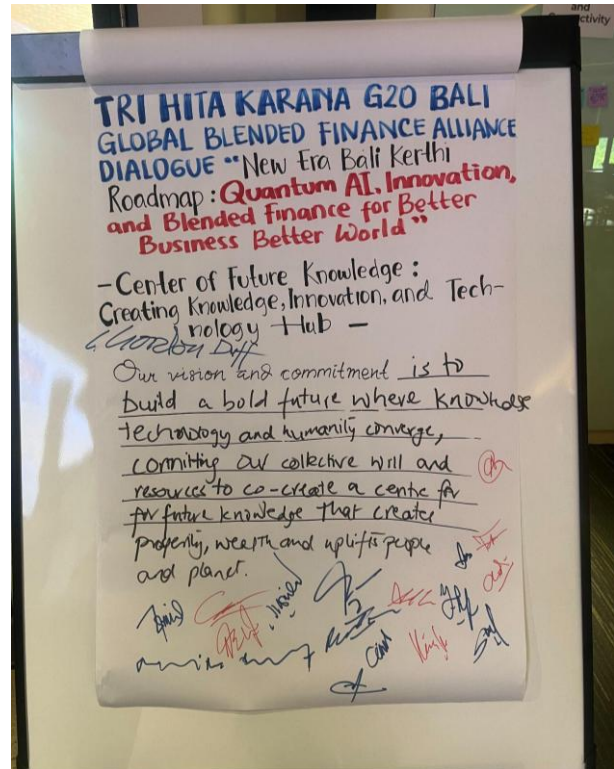 and
ctivity
TRI HITA KARANA G20 BALI
GLOBAL BLENDED FINANCE ALLIANCE
DIALOGUE "New Era Bali Kerthi
Roadmap: Quantum AI, Innovation,
and Blended Finance for Better
Business Better World"
- Center of Future Knowledge :
Creating Knowledge, Innovation, and Tech-
nology Hub -
Gordon Duff
Our vision and commitment is to
build a bold future where knowledge
technology and humanity converge,
committing our collective will and
resources to co-create a centre for
for future knowledge that creates
prosperity, wealth and uplifts people
and planet.